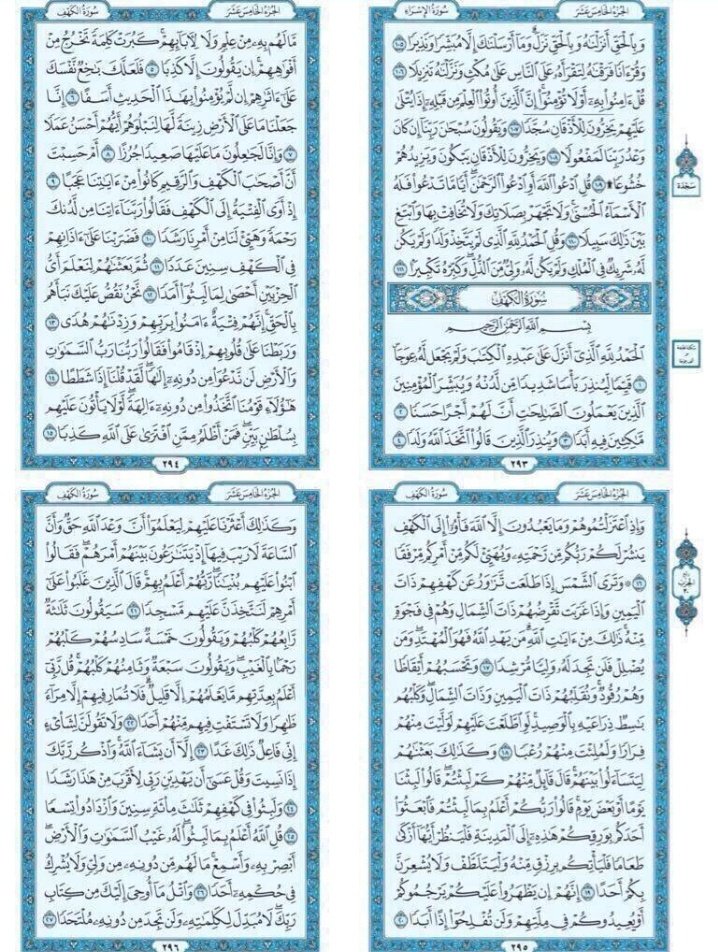 الجزء الخامس عشر
سورة الإسراء
وبالحق أنزلنه وبالحق نزل وما أرسلنك إلا مبشرا ونذيرا ١٠٥
وقرءانا فرقنه لتقرأه على الناس على مكث ونزلنه تنزيلا ١٠٦
قل ءامنوا به أو لا تؤمنوا إن الذين أوتوا العلم من قبله إذا يتلى
عليهم يخرون للأذقان سجدا ١٠٧ ويقولون سبحن ربنا إن كان
وعد ربنا لمفعولا ١٠٨ ويخرون للأذقان يبكون ويزيدهم
خشوعا ۩ ١٠٩ قل ادعوا الله أو ادعوا الرحمن أيا ما تدعوا فله
الأسماء الحسنى ولا تجهر بصلاتك ولا تخافت بها وابتغ
بين ذلك سبيلا ١١٠ وقل الحمد لله الذى لم يتخذ ولدا ولم يكن
له شريك فى الملك ولم يكن له ولى من الذل وكبره تكبيرا ١١١
سورة الكهف
بسم الله الرحمن الرحيم
الحمد لله الذى أنزل على عبده الكتب ولم يجعل له عوجا
١ قيما لينذر بأسا شديدا من لدنه ويبشر المؤمنين
الذين يعملون الصلحت أن لهم أجرا حسنا ٢
مكثين فيه أبدا ٣ وينذر الذين قالوا اتخذ الله ولدا ٤
٢٩٣
سجدة
الجزء الخامس عشر
سورة الكهف
ما لهم به من علم ولا لءابائهم كبرت كلمة تخرج من
أفوههم إن يقولون إلا كذبا ٥ فلعلك بخع نفسك
على ءاثرهم إن لم يؤمنوا بهذا الحديث أسفا ٦ إنا
جعلنا ما على الأرض زينة لها لنبلوهم أيهم أحسن عملا
٧ وإنا لجعلون ما عليها صعيدا جرزا ٨ أم حسبت
أن أصحب الكهف والرقيم كانوا من ءايتنا عجبا ٩
إذ أوى الفتية إلى الكهف فقالوا ربنا ءاتنا من لدنك
رحمة وهيئ لنا من أمرنا رشدا ١٠ فضربنا على ءاذانهم
فى الكهف سنين عددا ١١ ثم بعثنهم لنعلم أى
الحزبين أحصى لما لبثوا أمدا ١٢ نحن نقص عليك نبأهم
بالحق إنهم فتية ءامنوا بربهم وزدنهم هدى ١٣
وربطنا على قلوبهم إذ قاموا فقالوا ربنا رب السموت
والأرض لن ندعوا من دونه إلها لقد قلنا إذا شططا ١٤
هؤلاء قومنا اتخذوا من دونه ءالهة لولا يأتون عليهم
بسلطن بين فمن أظلم ممن افترى على الله كذبا ١٥
٢٩٤
الجزء الخامس عشر
سورة الكهف
وإذ اعتزلتموهم وما يعبدون إلا الله فأوا إلى الكهف
ينشر لكم ربكم من رحمته ويهيئ لكم من أمركم مرفقا
١٦ ۞ وترى الشمس إذا طلعت تزور عن كهفهم ذات
اليمين وإذا غربت تقرضهم ذات الشمال وهم فى فجوة
منه ذلك من ءايت الله من يهد الله فهو المهتد ومن
يضلل فلن تجد له وليا مرشدا ١٧ وتحسبهم أيقاظا
وهم رقود ونقلبهم ذات اليمين وذات الشمال وكلبهم
بسط ذراعيه بالوصيد لو اطلعت عليهم لوليت منهم
فرارا ولملئت منهم رعبا ١٨ وكذلك بعثنهم
ليتساءلوا بينهم قال قائل منهم كم لبثتم قالوا لبثنا
يوما أو بعض يوم قالوا ربكم أعلم بما لبثتم فابعثوا
أحدكم بورقكم هذه إلى المدينة فلينظر أيها أزكى
طعاما فليأتكم برزق منه وليتلطف ولا يشعرن
بكم أحدا ١٩ إنهم إن يظهروا عليكم يرجموكم
أو يعيدوكم فى ملتهم ولن تفلحوا إذا أبدا ٢٠
٢٩٥
الجزء الخامس عشر
سورة الكهف
وكذلك أعثرنا عليهم ليعلموا أن وعد الله حق وأن
الساعة لا ريب فيها إذ يتنزعون بينهم أمرهم فقالوا
ابنوا عليهم بنينا ربهم أعلم بهم قال الذين غلبوا على
أمرهم لنتخذن عليهم مسجدا ٢١ سيقولون ثلثة
رابعهم كلبهم ويقولون خمسة سادسهم كلبهم
رجما بالغيب ويقولون سبعة وثامنهم كلبهم قل ربى
أعلم بعدتهم ما يعلمهم إلا قليل فلا تمار فيهم إلا مراء
ظهرا ولا تستفت فيهم منهم أحدا ٢٢ ولا تقولن لشاىء
إنى فاعل ذلك غدا ٢٣ إلا أن يشاء الله واذكر ربك
إذا نسيت وقل عسى أن يهدين ربى لأقرب من هذا رشدا
٢٤ ولبثوا فى كهفهم ثلث مائة سنين وازدادوا تسعا
٢٥ قل الله أعلم بما لبثوا له غيب السموت والأرض
أبصر به وأسمع ما لهم من دونه من ولى ولا يشرك
فى حكمه أحدا ٢٦ واتل ما أوحى إليك من كتاب
ربك لا مبدل لكلمته ولن تجد من دونه ملتحدا ٢٧
٢٩٦